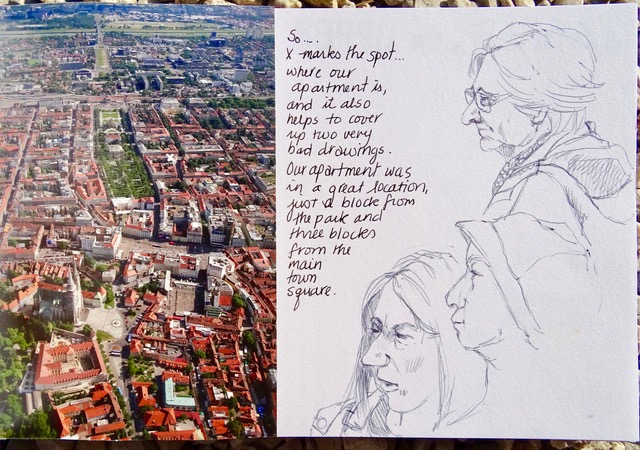 So....
X-marks the spot...
where our
apartment is,
and it also
helps to cover
up two very
bad drawings.
Our apartment was
in a great location,
just a block from
the park and
three blocks
from the
main
town
square.